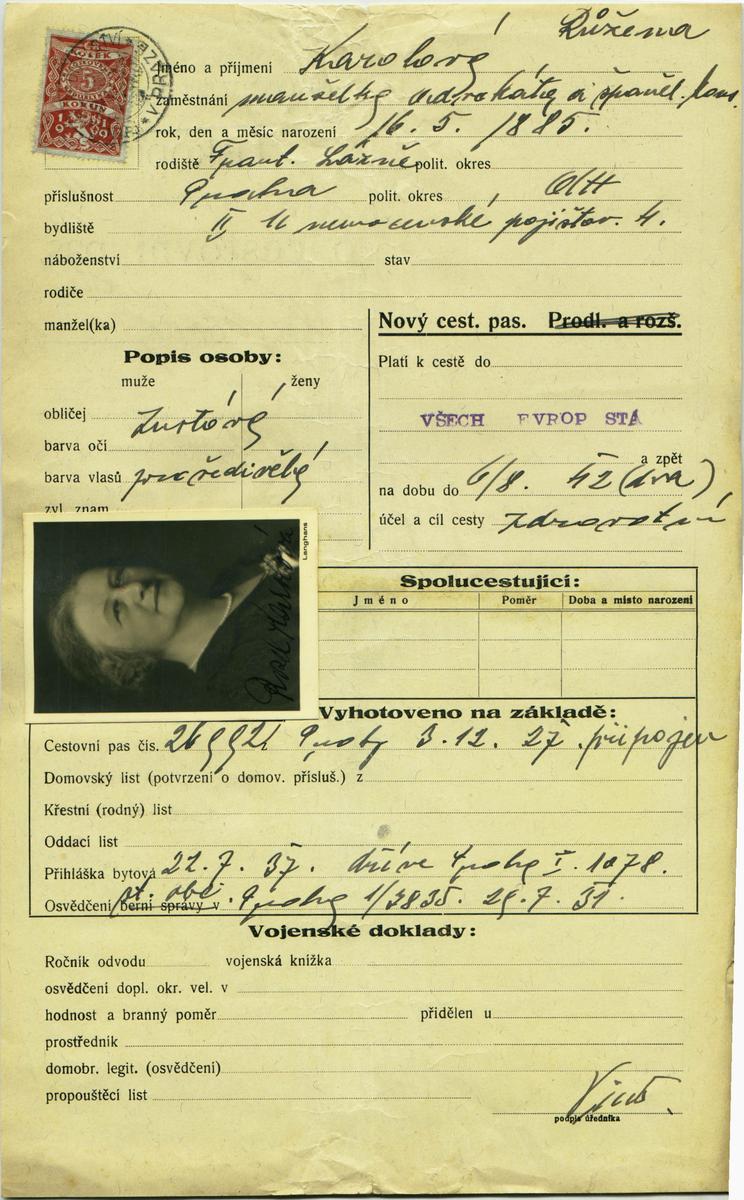 KOLEK
5
KORUN
Růžena
Jméno a příjmení Karolová
zaměstnání manželka advokáta a španěl. kons.
rok, den a měsíc narození 16. 5. 1885.
rodiště Frant. Lázně polit. okres
příslušnost Praha polit. okres
bydliště II U nemocenské pojišťov. 4.
náboženství stav
rodiče
manžel(ka)
Nový cest. pas. Prodl. a rozš.
Popis osoby:
muže ženy
obličej
barva očí
barva vlasů prošedivělý
zvl. znam.
Platí k cestě do
VŠECH EVROP STÁ
a zpět
na dobu do 6/8. 42 (dva)
účel a cíl cesty zdravotní
Langhans
Spolucestující:
Jméno Poměr Doba a místo narození
Vyhotoveno na základě:
Cestovní pas čís. Prahy 3.12. 27. připojen
Domovský list (potvrzení o domov. přísluš.) z
Křestní (rodný) list
Oddací list
Přihláška bytová 22. 7. 37. dříve Prahy I. 1078.
Osvědčení berní správy v Prahy 1/3835. 29. 7. 31.
Vojenské doklady:
Ročník odvodu vojenská knížka
osvědčení dopl. okr. vel. v
hodnost a branný poměr přidělen u
prostředník
domobr. legit. (osvědčení)
propouštěcí list
podpis úředníka